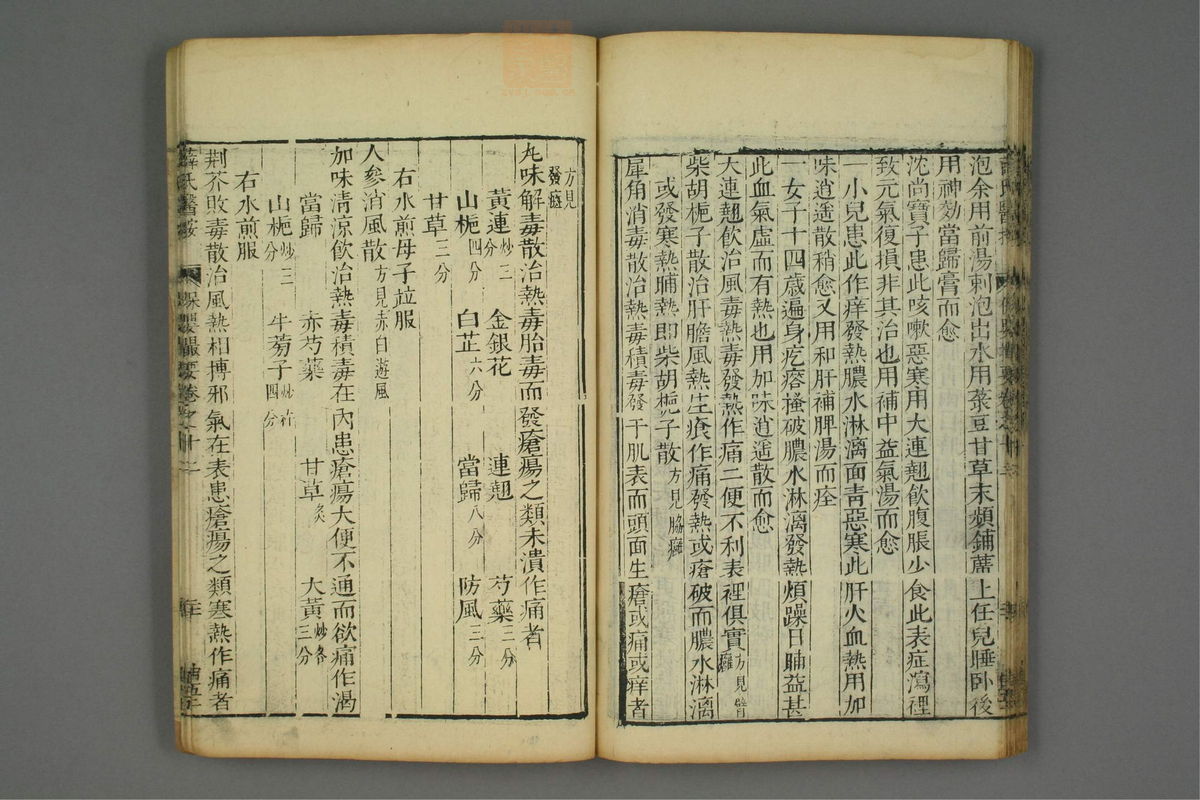 泡余用前湯刺泡出水用菉豆甘草末頻鋪蓆上任兒睡卧後
用神効當歸膏而愈
沈尚寶子患此咳嗽惡寒用大連翹飲腹脹少食此表症瀉裡
致元氣復損非其治也用補中益氣湯而愈
一小兒患此作痒發熱膿水淋漓面青惡寒此肝火血熱用加
味逍遥散稍愈又用和肝補脾湯而痊
一女子十四歲遍身疙瘩搔破膿水淋漓發熱煩躁日晡益甚
此血氣虛而有熱也用加味逍遥散而愈
大連翹飲治風毒熱毒發熱作痛二便不利表裡俱實方見臂癰
柴胡梔子散治肝膽風熱生瘡作痛發熱或瘡破而膿水淋漓
或發寒熱晡熱即柴胡梔子散方見脇癰
犀角消毒散治熱毒積毒發于肌表而頭面生瘡或痛或痒者
方見發癍
九味解毒散治熱毒胎毒而發瘡瘍之類未潰作痛者
黃連炒三分 金銀花 連翹 芍藥二分
山梔四分 白芷六分 當歸八分 防風三分
甘草三分
右水煎母子竝服
人參消風散方見赤白遊風
加味清涼飲治熱毒積毒在內患瘡瘍大便不通而欲痛作渴
當歸 赤芍藥 甘草炙 大黃炒各三分
山梔炒三分 牛蒡子炒杵四分
右水煎服
荆芥敗毒散治風熱相搏邪氣在表患瘡瘍之類寒熱作痛者
薛氏醫案 保嬰撮要卷之十二